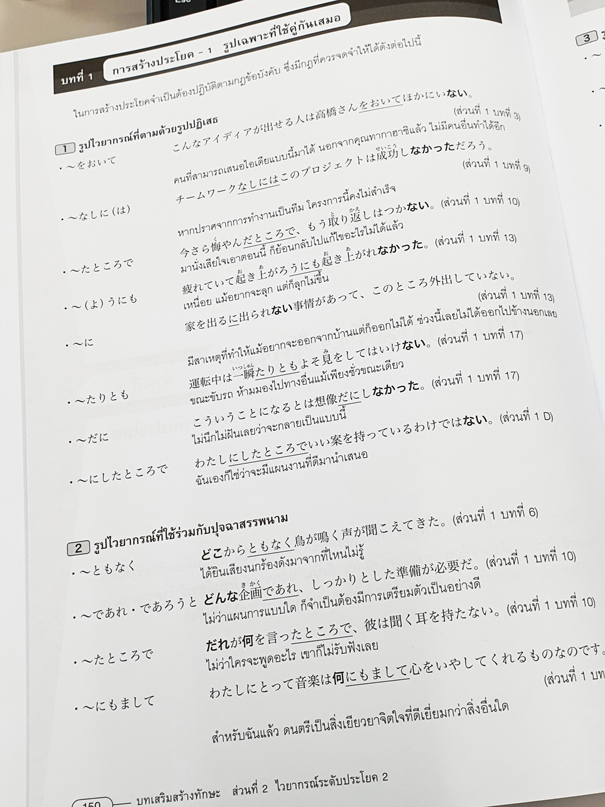 บทที่ 1 การสร้างประโยค - 1 รูปเฉพาะที่ใช้คู่กันเสมอ
ในการสร้างประโยคจำเป็นต้องปฏิบัติตามกฎข้อบังคับ ซึ่งมีกฎที่ควรจดจำให้ได้ดังต่อไปนี้
1 รูปไวยากรณ์ที่ตามด้วยรูปปฏิเสธ
・～をおいて こんなアイディアが出せる人は高橋さんをおいてほかにいない。
(ส่วนที่ 1 บทที่ 3)
คนที่สามารถเสนอไอเดียแบบนี้มาได้ นอกจากคุณทากาฮาชิแล้ว ไม่มีคนอื่นทำได้อีก
・～なしに(は) チームワークなしにはこのプロジェクトは成功しなかっただろう。
せいこう
(ส่วนที่ 1 บทที่ 9)
หากปราศจากการทำงานเป็นทีม โครงการนี้คงไม่สำเร็จ
・～たところで 今さら悔やんだところで、もう取り返しはつかない。(ส่วนที่ 1 บทที่ 10)
く と かえ
มานั่งเสียใจเอาตอนนี้ ก็ย้อนกลับไปแก้ไขอะไรไม่ได้แล้ว
・～(よ)うにも 疲れていて起き上がろうにも起き上がれなかった。(ส่วนที่ 1 บทที่ 13)
お あ お あ
เหนื่อย แม้อยากจะลุก แต่ก็ลุกไม่ขึ้น
・～に 家を出るに出られない事情があって、このところ外出していない。
(ส่วนที่ 1 บทที่ 13)
มีสาเหตุที่ทำให้แม้อยากจะออกจากบ้านแต่ก็ออกไม่ได้ ช่วงนี้เลยไม่ได้ออกไปข้างนอกเลย
・～たりとも 運転中は一瞬たりともよそ見をしてはいけない。(ส่วนที่ 1 บทที่ 17)
いっしゅん み
ขณะขับรถ ห้ามมองไปทางอื่นแม้เพียงชั่วขณะเดียว
・～だに こういうことになるとは想像だにしなかった。(ส่วนที่ 1 บทที่ 17)
ไม่นึกไม่ฝันเลยว่าจะกลายเป็นแบบนี้
・～にしたところで わたしにしたところでいい案を持っているわけではない。(ส่วนที่ 1 D)
ฉันเองก็ใช่ว่าจะมีแผนงานที่ดีมานำเสนอ
2 รูปไวยากรณ์ที่ใช้ร่วมกับปุจฉาสรรพนาม
・～ともなく どこからともなく鳥が鳴く声が聞こえてきた。(ส่วนที่ 1 บทที่ 6)
ได้ยินเสียงนกร้องดังมาจากที่ไหนไม่รู้
・～であれ・であろうと どんな企画であれ、しっかりとした準備が必要だ。(ส่วนที่ 1 บทที่ 10)
きかく
ไม่ว่าแผนการแบบใด ก็จำเป็นต้องมีการเตรียมตัวเป็นอย่างดี
・～たところで だれが何を言ったところで、彼は聞く耳を持たない。(ส่วนที่ 1 บทที่ 10)
ไม่ว่าใครจะพูดอะไร เขาก็ไม่รับฟังเลย
・～にもまして わたしにとって音楽は何にもまして心をいやしてくれるものなのです。
(ส่วนที่ 1 บท
สำหรับฉันแล้ว ดนตรีเป็นสิ่งเยียวยาจิตใจที่ดีเยี่ยมกว่าสิ่งอื่นใด
150 บทเสริมสร้างทักษะ ส่วนที่ 2 ไวยากรณ์ระดับประโยค 2
3